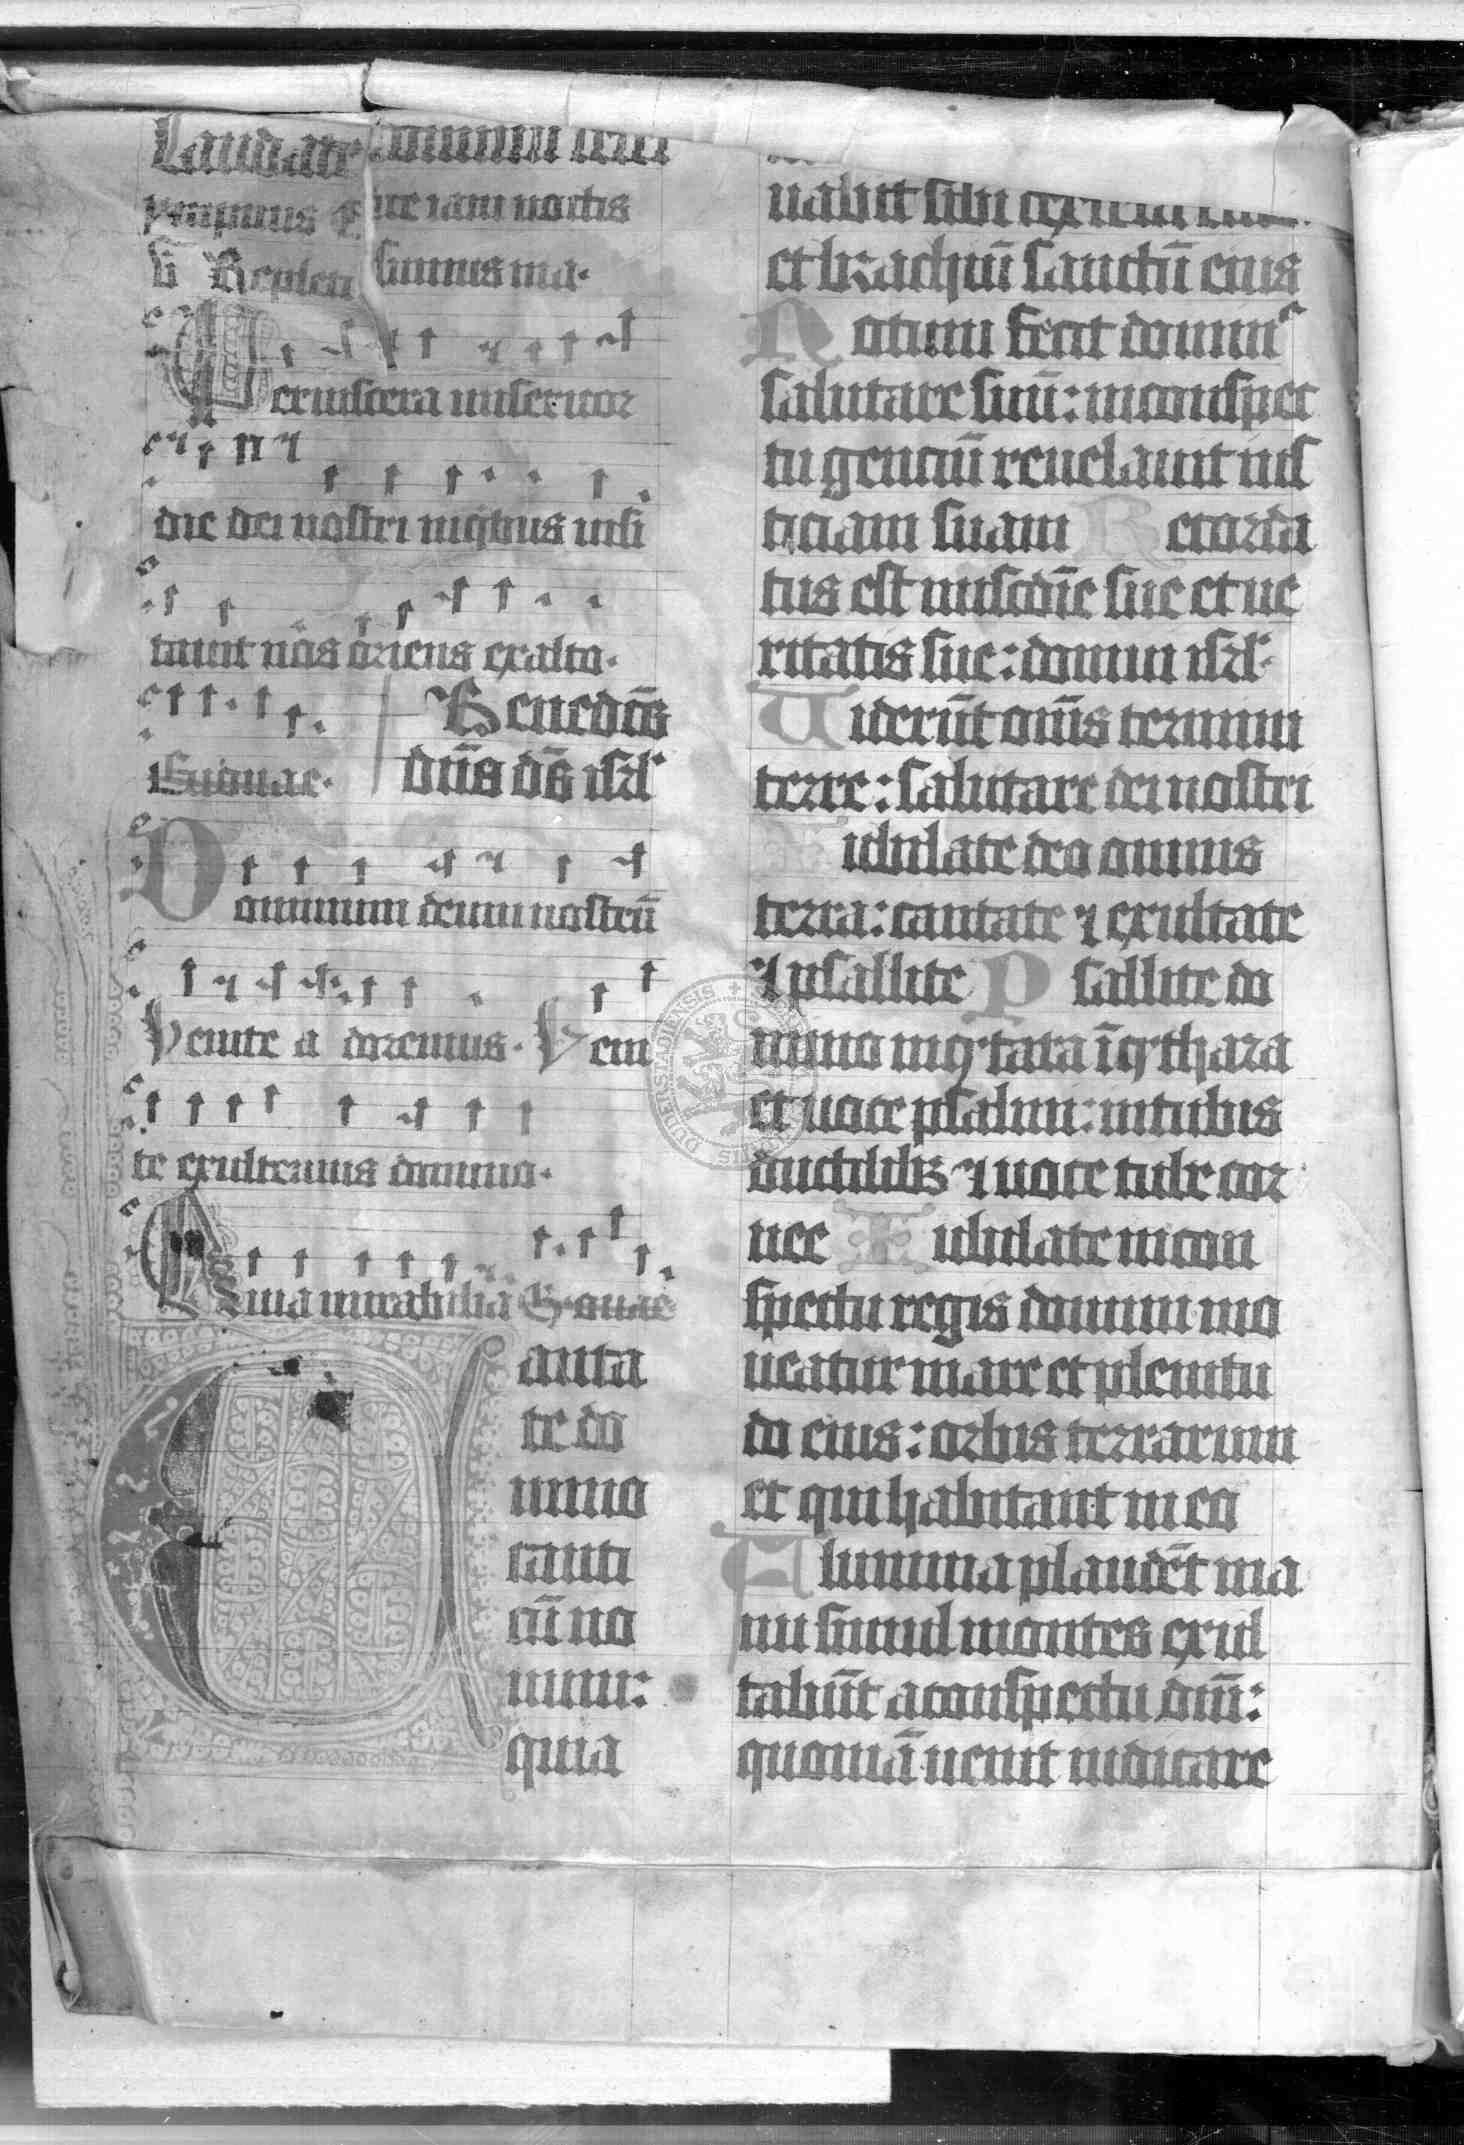 Laudate dominum
iam noctis
v̄ Repleti sumus ma·
Per viscera misericor
die dei nostri in quibus visi
tauit nos oriens ex alto·
Euouae· Benedictꝰ
dn̄s ds̄ isrl
Dominum deum nostrū
Venite adoremus· Veni
te exultemus domino·
Quia mirabilia Euouae
Canta
te do
mino
canti
cū no
uum:
quia
uabit sibi dextera
et brachiū sanctū eius
Notum fecit dominꝰ
salutare suū: in conspec
tu genciū reuelauit ius
ticiam suam Recorda
tus est mīscdīe sue et ue
ritatis sue: domui isrl·
Viderūt om̄s termini
terre: salutare dei nostri
Iubilate deo omnis
terra: cantate ⁊ exultate
⁊ psallite Psallite do
mino in cythara ī cythara
et uoce psalmi: in tubis
ductilibꝫ ⁊ uoce tube cor
nee Iubilate in con
spectu regis domini mo
ueatur mare et plenitu
do eius: orbis terrarum
et qui habitant in eo
Flumina plaudēt ma
nu simul montes exul
tabūt a conspectu dn̄i:
quoniā uenit iudicare